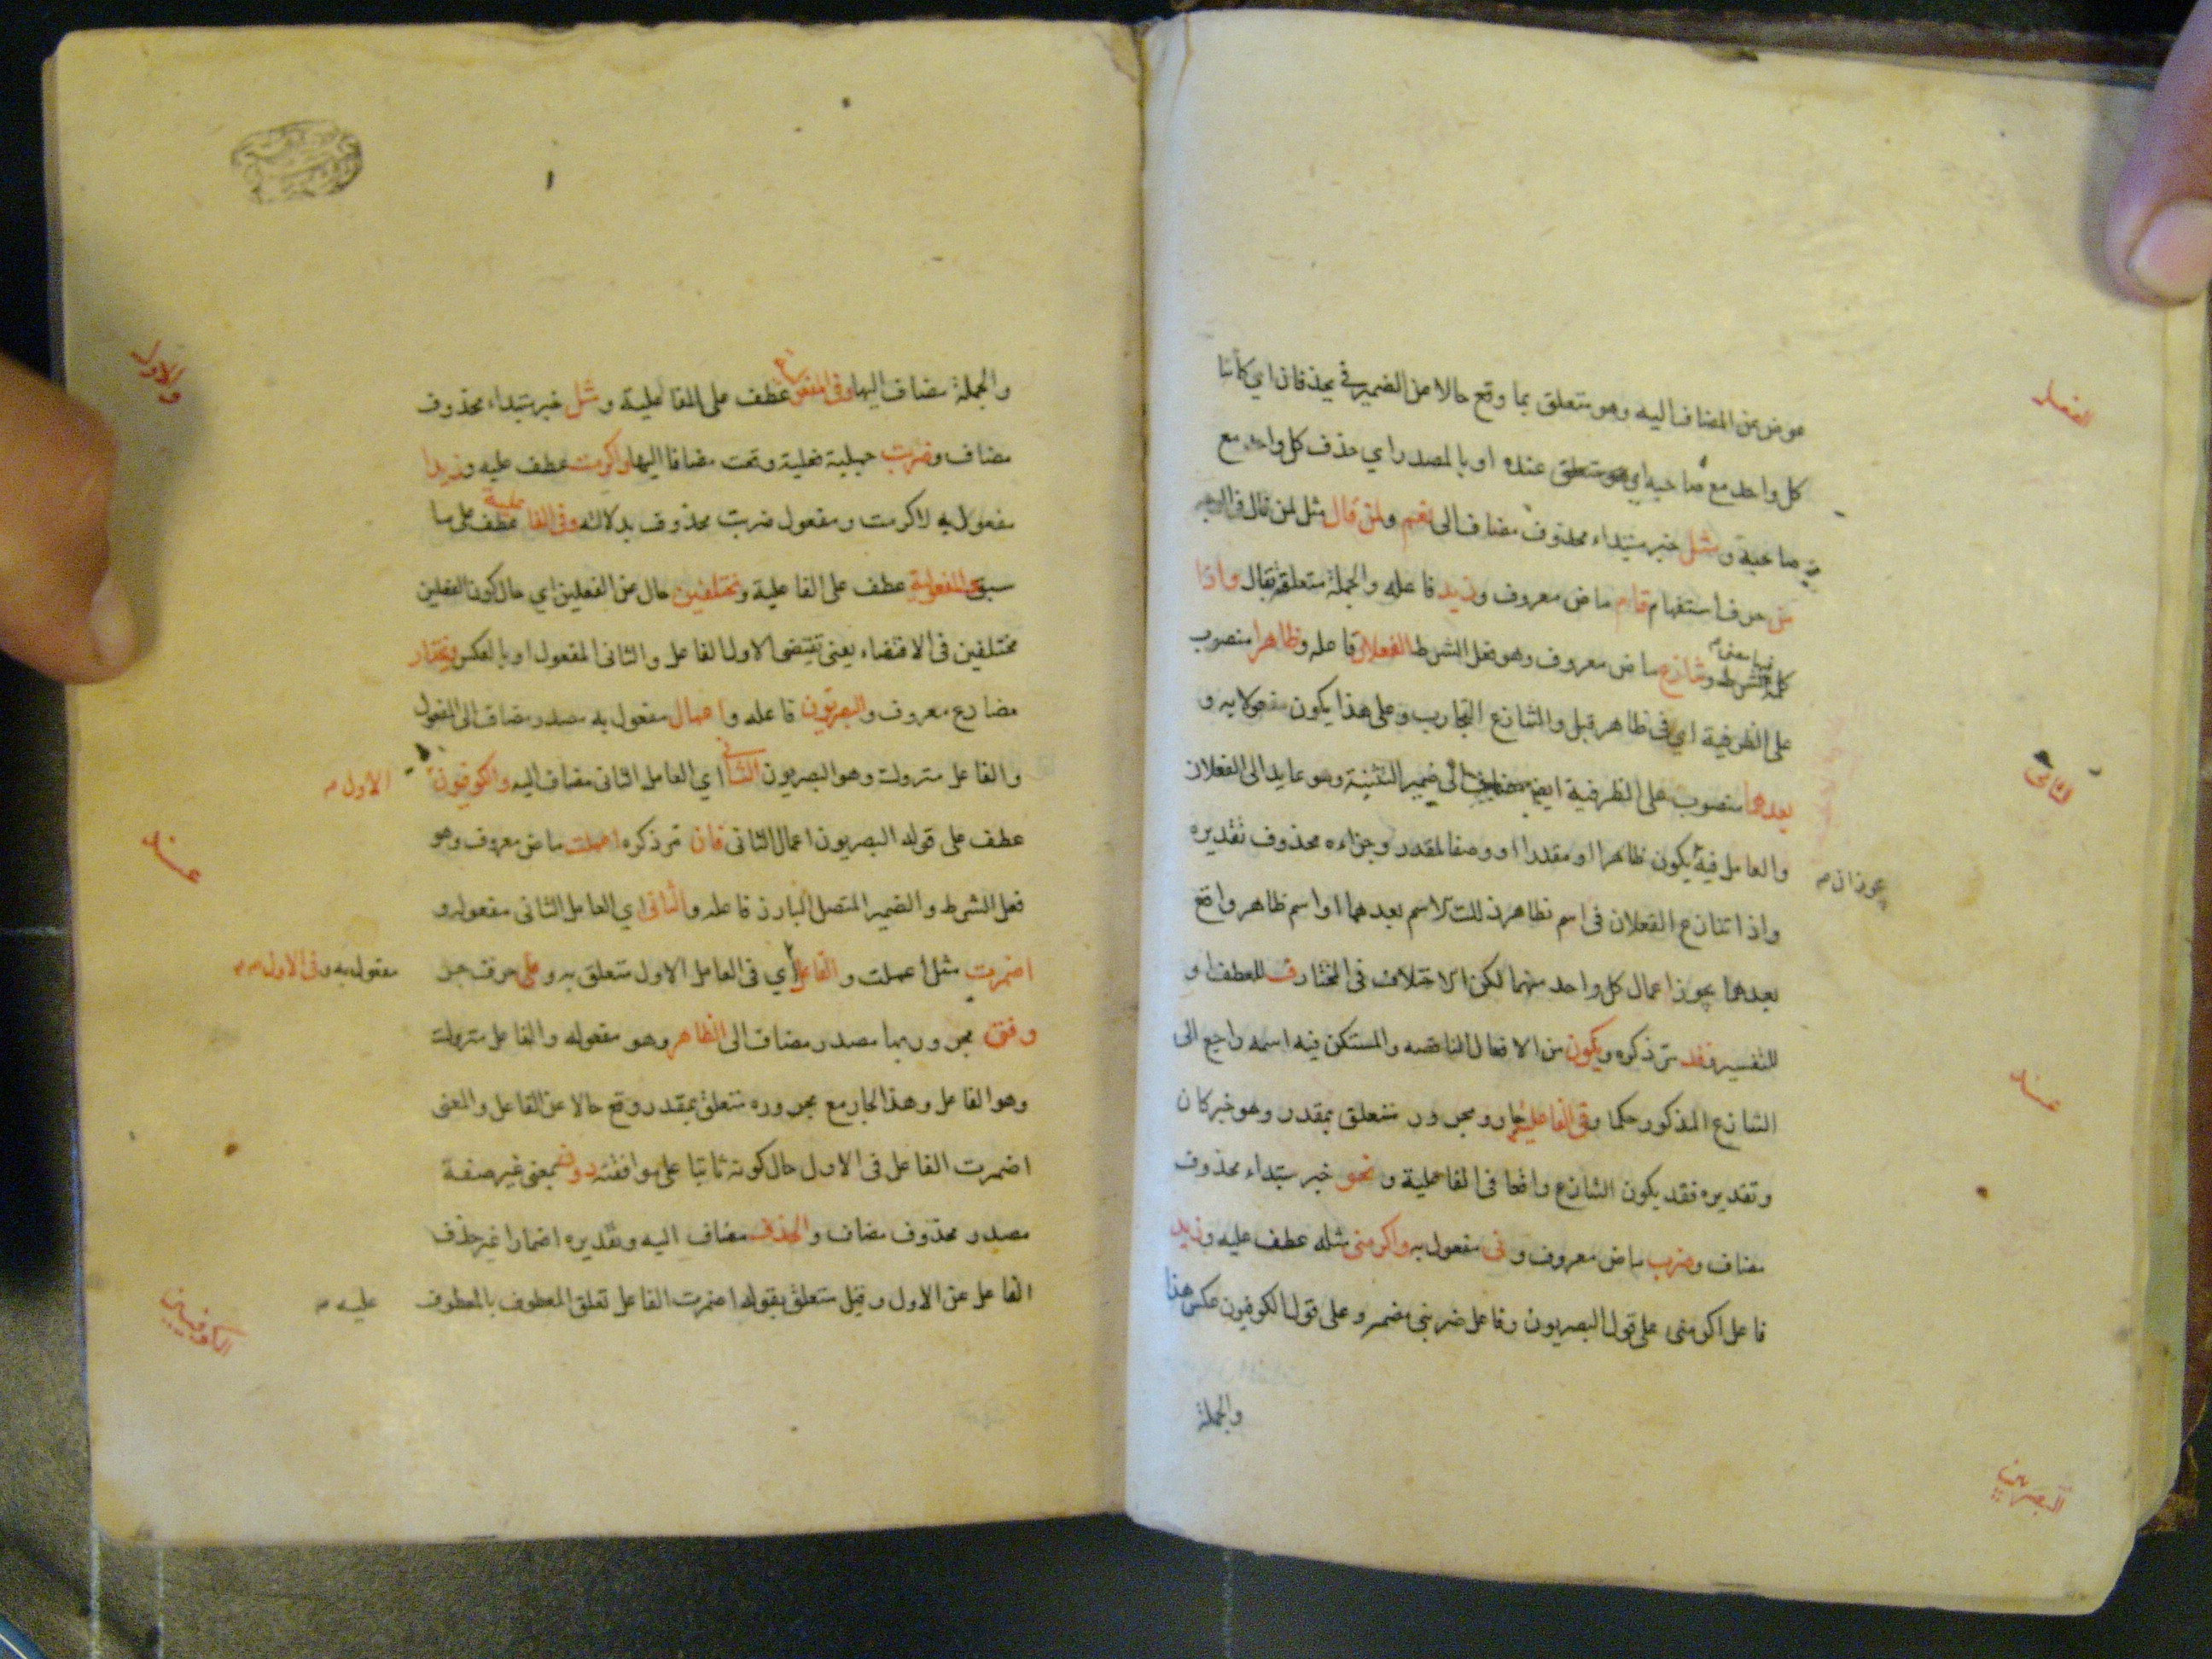 عوض عن المضاف اليه وهو متعلق بما وقع حالا من الضمير في يحذفان اي كائنا
كل واحد مع صاحبه اي هو متعلق عنده او بالمصدر اي حذف كل واحد مع
صاحبه و مثل خبر مبتداء محذوف مضاف الى نعم ولمن قال مثل لمن قال في
حرف استفهام قام ماض معروف وزيد فاعله والجملة متعلقة بقال واذا
كلمة فيها معنى الشرط وتنازع ماض معروف وهو فعل الشرط الفعلان فاعله وظاهرا منصوب
على الظرفية اي في ظاهر قبل والتنازع التجارب وعلى هذا يكون مفعولا به و
بعدهما منصوب على الظرفية ايضا مضاف الى ضمير التثنية وهو عايد الى الفعلان
والعامل فيه يكون ظاهرا او مقدرا او وصفا لمقدر وجزاءه محذوف تقديره
يجوز ان
واذا تنازع الفعلان في اسم ظاهر ذلك الاسم بعدهما او اسم ظاهر واقع
بعدهما يجوز اعمال كل واحد منهما لكن الاختلاف في المختار ف للعطف او
للتفسير وقد مر ذكره ويكون من الافعال الناقصه والمستكن فيه اسمه راجع الى
التنازع المذكور حكما وفي الفاعلية جار ومجرور متعلق بمقدر وهو خبر كان
وتقديره فقد يكون التنازع واقعا في الفاعلية و نحو خبر مبتداء محذوف
مضاف وضرب ماض معروف و نى مفعول به واكرمنى مثله عطف عليه وزيد
فاعل اكرمنى على قول البصريون وفاعل ضربنى مضمر وعلى قول الكوفيون عكس هذا
والجملة
الثانى
البصريين
والجملة مضاف اليها وفي المفعولية عطف على الفاعلية و مثل خبر مبتداء محذوف
مضاف وضربت جملية فعلية وقعت مضافا اليها واكرمت عطف عليه وزيدا
مفعول به لاكرمت ومفعول ضربت محذوف بدلالته وفي الفاعلية عطف على ما
سبق والمفعولية عطف على الفاعلية ومختلفين حال من الفعلين اي حال كون الفعلين
مختلفين في الاقتضاء يعنى تقتضى الاول الفاعل والثانى المفعول او بالعكس ويختار
مضارع معروف والبصريون فاعله واعمال مفعول به مصدر مضاف الى المفعول
والفاعل متروك وهو البصريون الثانى اي العامل الثانى مضاف اليه والكوفيون الاول
عطف على قوله البصريون اعمال الثانى فان مر ذكره اعملت ماض معروف وهو
فعل الشرط والضمير المتصل البارز فاعله والثانى اي العامل الثانى مفعوله و
اضمرت مثل اعملت و الفاعل مفعول به وفي الاول اي في العامل الاول متعلق به وعلى حرف جر
وفق مجرور بها مصدر مضاف الى الظاهر وهو مفعوله والفاعل متروك
وهو الفاعل وهذا الجار مع مجروره متعلق بمقدر وقع حالا عن الفاعل والمعنى
اضمرت الفاعل في الاول حال كونه ثابتا على موافقته دون بمعنى غير صفة
مصدر محذوف مضاف والحذف مضاف اليه وتقديره اضمارا غير حذف
الفاعل عن الاول وقيل متعلق بقوله اضمرت الفاعل تعلق المعطوف بالمعطوف عليه
والاول
الكوفيين